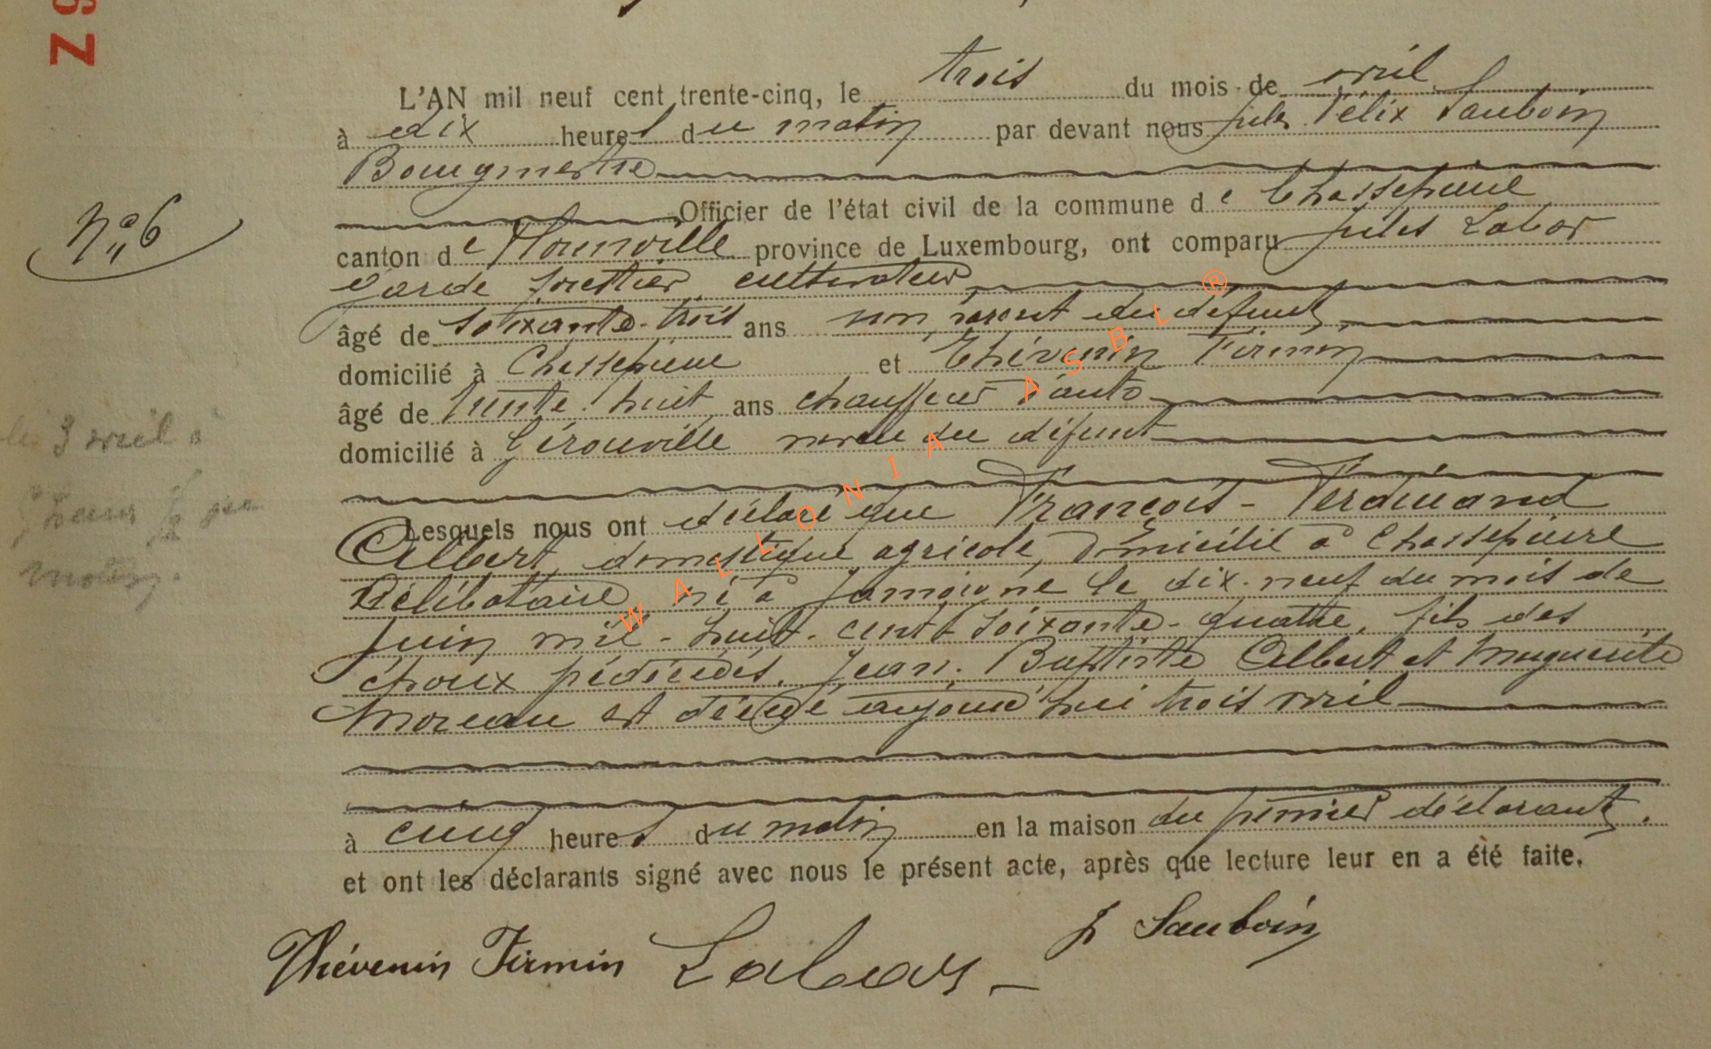 L'AN mil neuf cent trente-cinq, le trois du mois de avril
à dix heures du matin par devant nous Jules Félix Sauboin
Bourgmestre
Officier de l'état civil de la commune de Chassepierre
N° 6
canton de Florenville province de Luxembourg, ont comparu Jules Labar
Garde forestier, cultivateur
âgé de soixante-trois ans non parent du défunt
domicilié à Chassepierre et Thévenin Firmin
âgé de trente-huit ans chauffeur d'auto
domicilié à Gérouville neveu du défunt
le 3 avril à
heures du
matin.
Lesquels nous ont déclaré que François-Ferdinand
Albert, domestique agricole, domicilié à Chassepierre
Célibataire, né à Jamoigne le dix-neuf du mois de
juin mil-huit-cent-soixante-quatre, fils des
époux prédécédés, Jean-Baptiste Albert et Marguerite
Moreau est décédé aujourd'hui trois avril
à cinq heures du matin en la maison du premier déclarant.
et ont les déclarants signé avec nous le présent acte, après que lecture leur en a été faite.
Thévenin Firmin Labar J Sauboin
WALLONIA ASBL ®